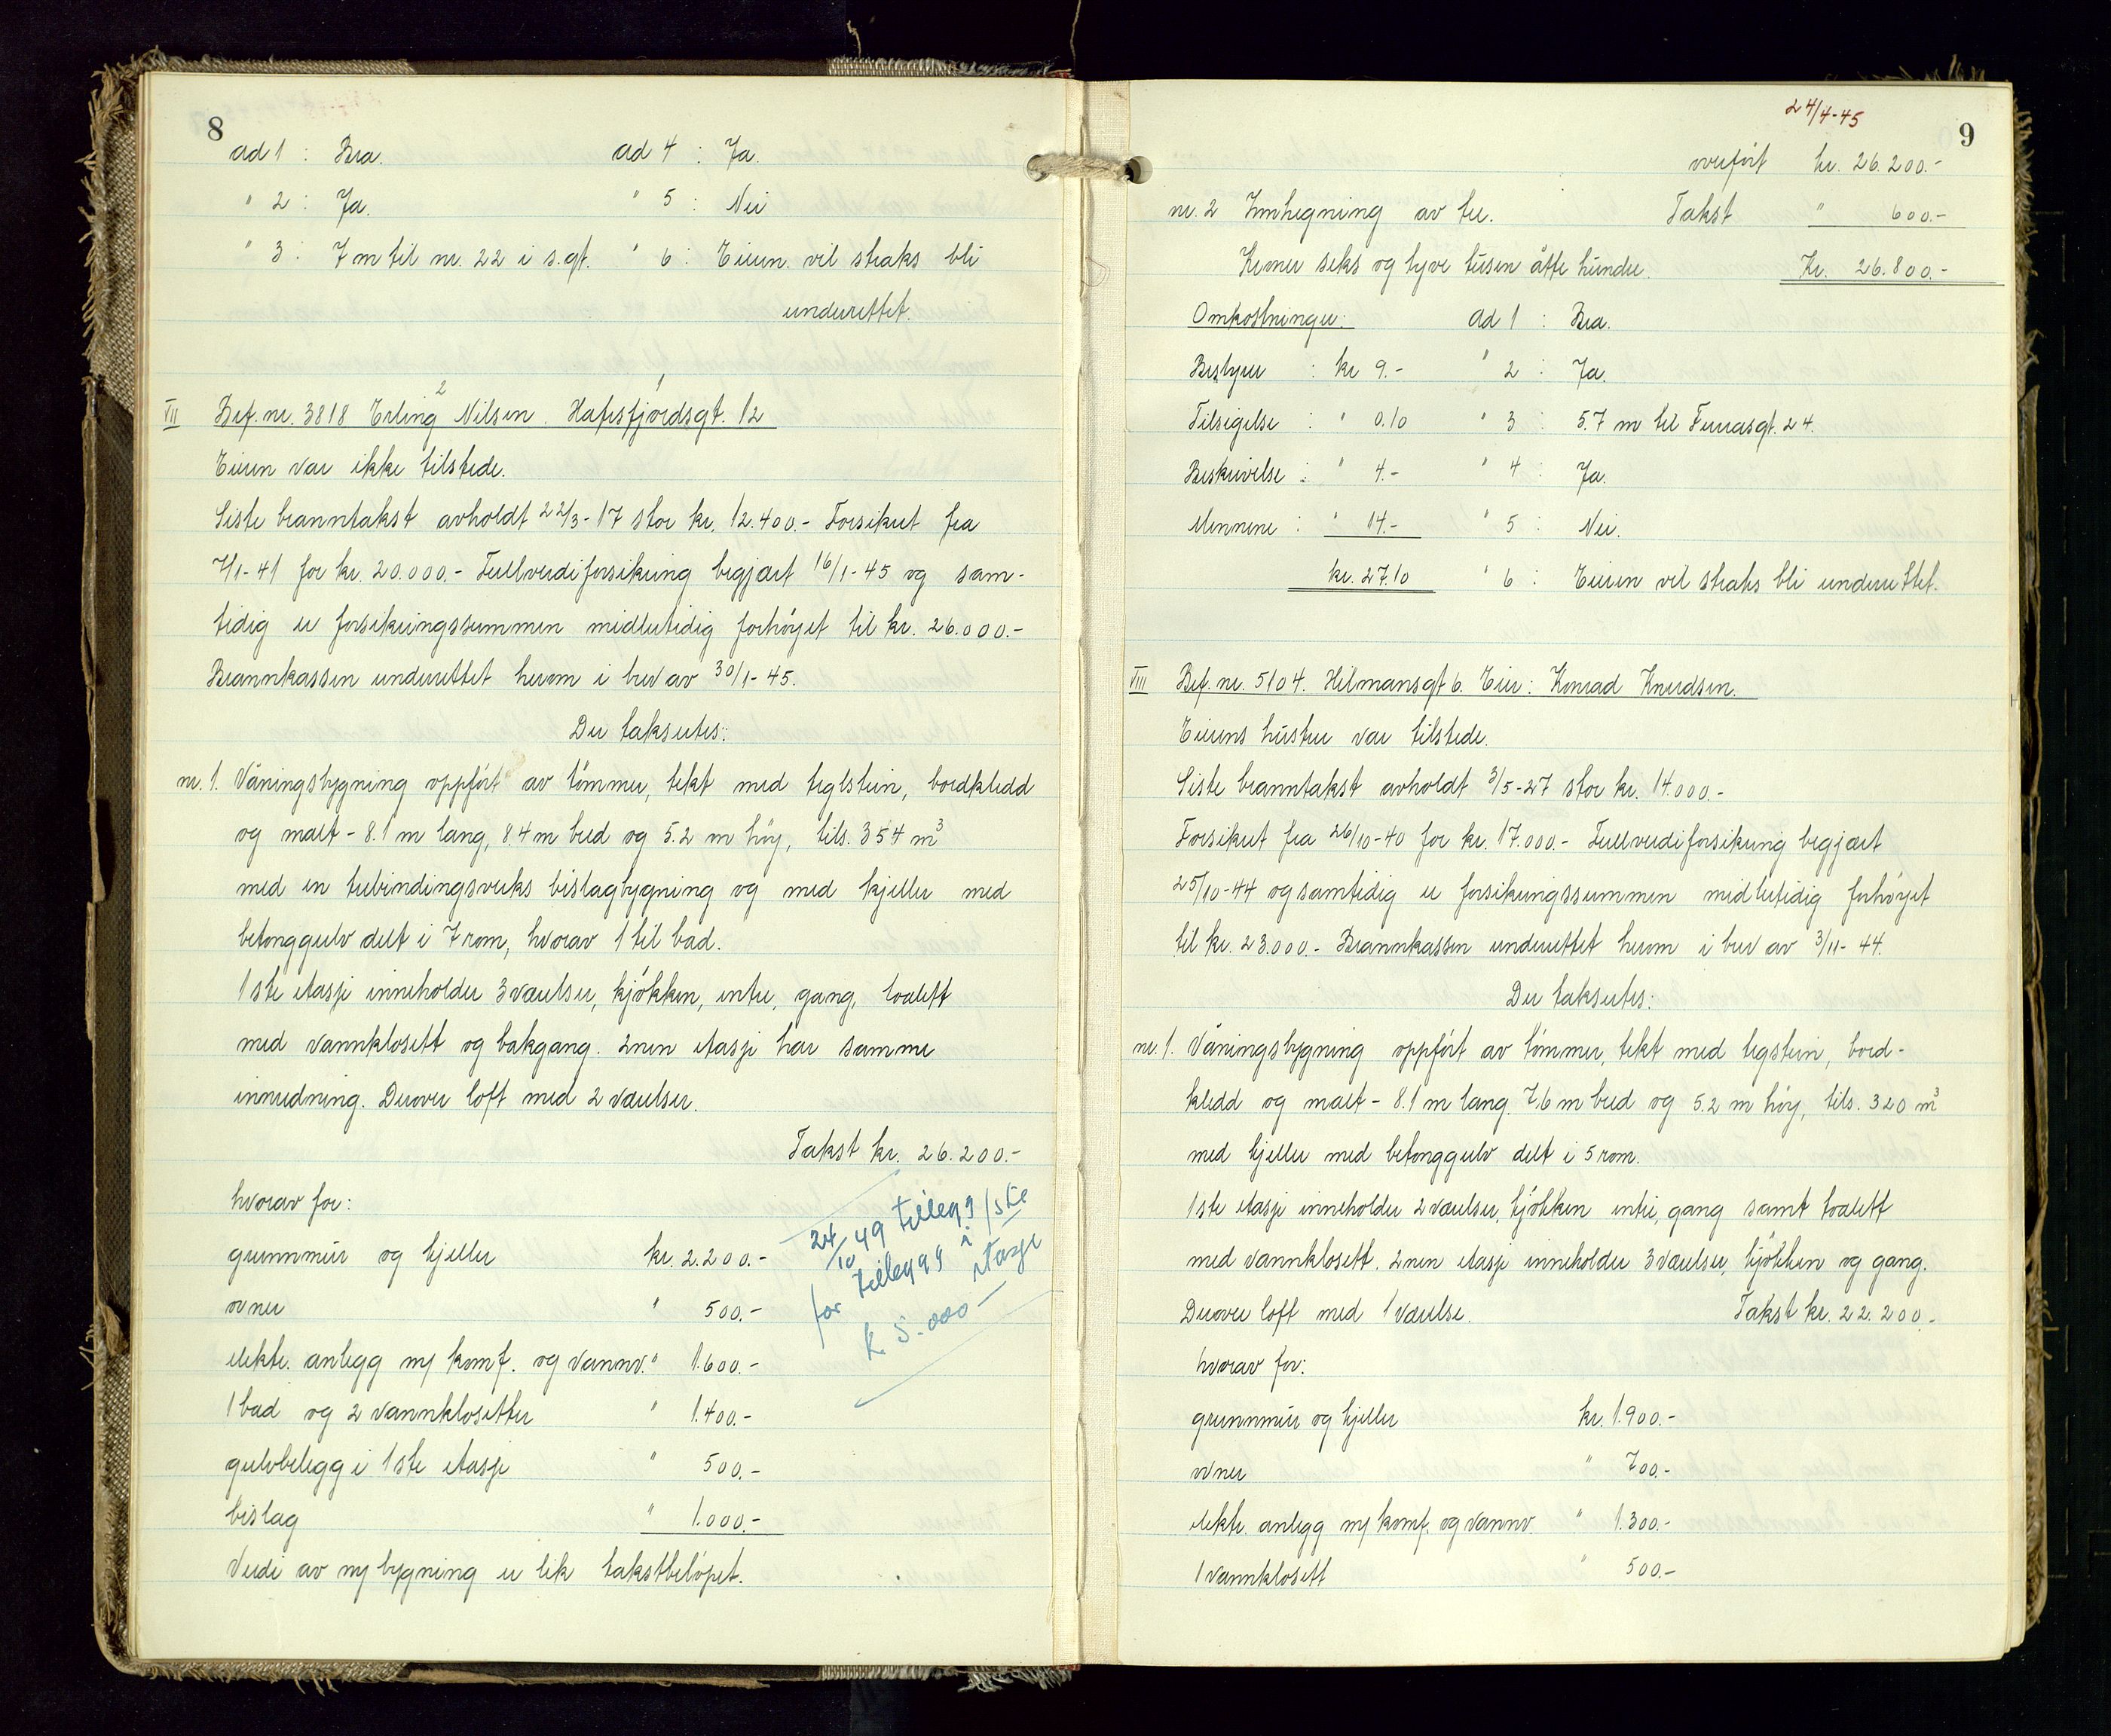 8
ad 1 : Bra. ad 4 : Ja.
" 2 : Ja. " 5 : Nei
" 3 : 7 m til nr. 22 i s.gt. " 6 : Eieren vil straks bli
underrettet.
VII Bef. nr. 3818 Erling Nilsen. Hafrsfjordsgt. 12
2
Eieren var ikke tilstede.
Siste branntakst avholdt 22/3-17 stor kr. 12.400.- Forsikret fra
7/1-41 for kr. 20.000.- Fullverdiforsikring begjært 16/1-45 og sam-
tidig er forsikringssummen midlertidig forhøyet til kr. 26.000.-
Brannkassen underrettet herom i brev av 30/1-45.
Der takseres:
nr. 1. Våningsbygning oppført av tømmer, tekt med teglstein, bordkledd
og malt - 8.1 m lang, 8.4 m bred og 5.2 m høy, tils. 354 m³
med en trebindingsverks bislagbygning og med kjeller med
betonggulv delt i 7 rom, hvorav 1 til bad.
1ste etasje inneholder 3 værelser, kjøkken, entre, gang, toalett
med vannklosett og bakgang. 2nen etasje har samme
innredning. Derover loft med 2 værelser.
Takst kr. 26.200.-
hvorav for:
grunnmur og kjeller kr. 2.200.-
ovner " 500.-
elektr. anlegg m/ komf. og vannv. " 1.600.-
1 bad og 2 vannklosetter " 1.400.-
gulvbelegg i 1ste etasje " 500.-
bislag " 1.000.-
Verdi av ny bygning er lik takstbeløpet.
24/10 49 tillegg
for tillegg i 1ste etasje
k 5.000 -
24/4-45
9
overført kr. 26.200.-
nr. 2 Innhegning av tre. Takst " 600.-
Kroner seks og tyve tusen åtte hundre. Kr. 26.800.-
Omkostninger: ad 1 : Bra.
Bestyrer : kr 9.- " 2 : Ja.
Tilsigelse : " 0.10 " 3 : 5.7 m til Furrasgt. 24.
Beskrivelse : " 4.- " 4 : Ja.
Mennene : " 14.- " 5 : Nei.
kr. 27.10 " 6 : Eieren vil straks bli underrettet.
VIII Bef. nr. 5104. Hilmansgt 6. Eier: Konrad Knudsen.
Eierens hustru var tilstede.
Siste branntakst avholdt 3/5-27 stor kr. 14.000.-
Forsikret fra 26/10-40 for kr. 17.000.- Fullverdiforsikring begjært
25/10-44 og samtidig er forsikringssummen midlertidig forhøyet
til kr. 23.000.- Brannkassen underrettet herom i brev av 3/11-44.
Der takseres:
nr. 1. Våningsbygning oppført av tømmer, tekt med tegstein, bord-
kledd og malt - 8.1 m lang, 7.6 m bred og 5.2 m høy, tils. 320 m³
med kjeller med betonggulv delt i 5 rom.
1ste etasje inneholder 2 værelser, kjøkken entre, gang samt toalett
med vannklosett. 2nen etasje inneholder 3 værelser, kjøkken og gang.
Derover loft med 1 værelse. Takst kr. 22.200.-
hvorav for:
grunnmur og kjeller kr. 1.900.-
ovner " 700.-
elektr. anlegg m/ komf. og vannv. " 1.300.-
1 vannklosett " 500.-